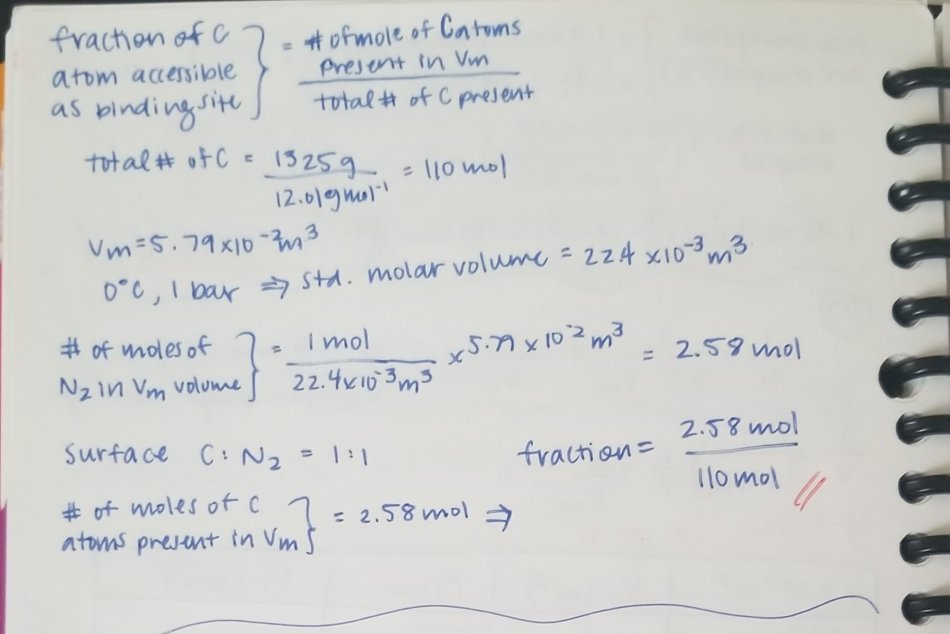 fraction of C
atom accessible
as binding site } = # of mole of C atoms present in Vm / total # of C present
total # of C = 1325g / 12.01gmol⁻¹ = 110 mol
Vm = 5.79 x10⁻²m³
0°C, 1 bar ⇒ std. molar volume = 22.4 x10⁻³m³
# of moles of
N₂ in Vm volume } = 1 mol / 22.4x10⁻³m³ x 5.79 x 10⁻² m³ = 2.58 mol
surface C:N₂ = 1:1
fraction = 2.58 mol / 110 mol
# of moles of C
atoms present in Vm } = 2.58 mol ⇒